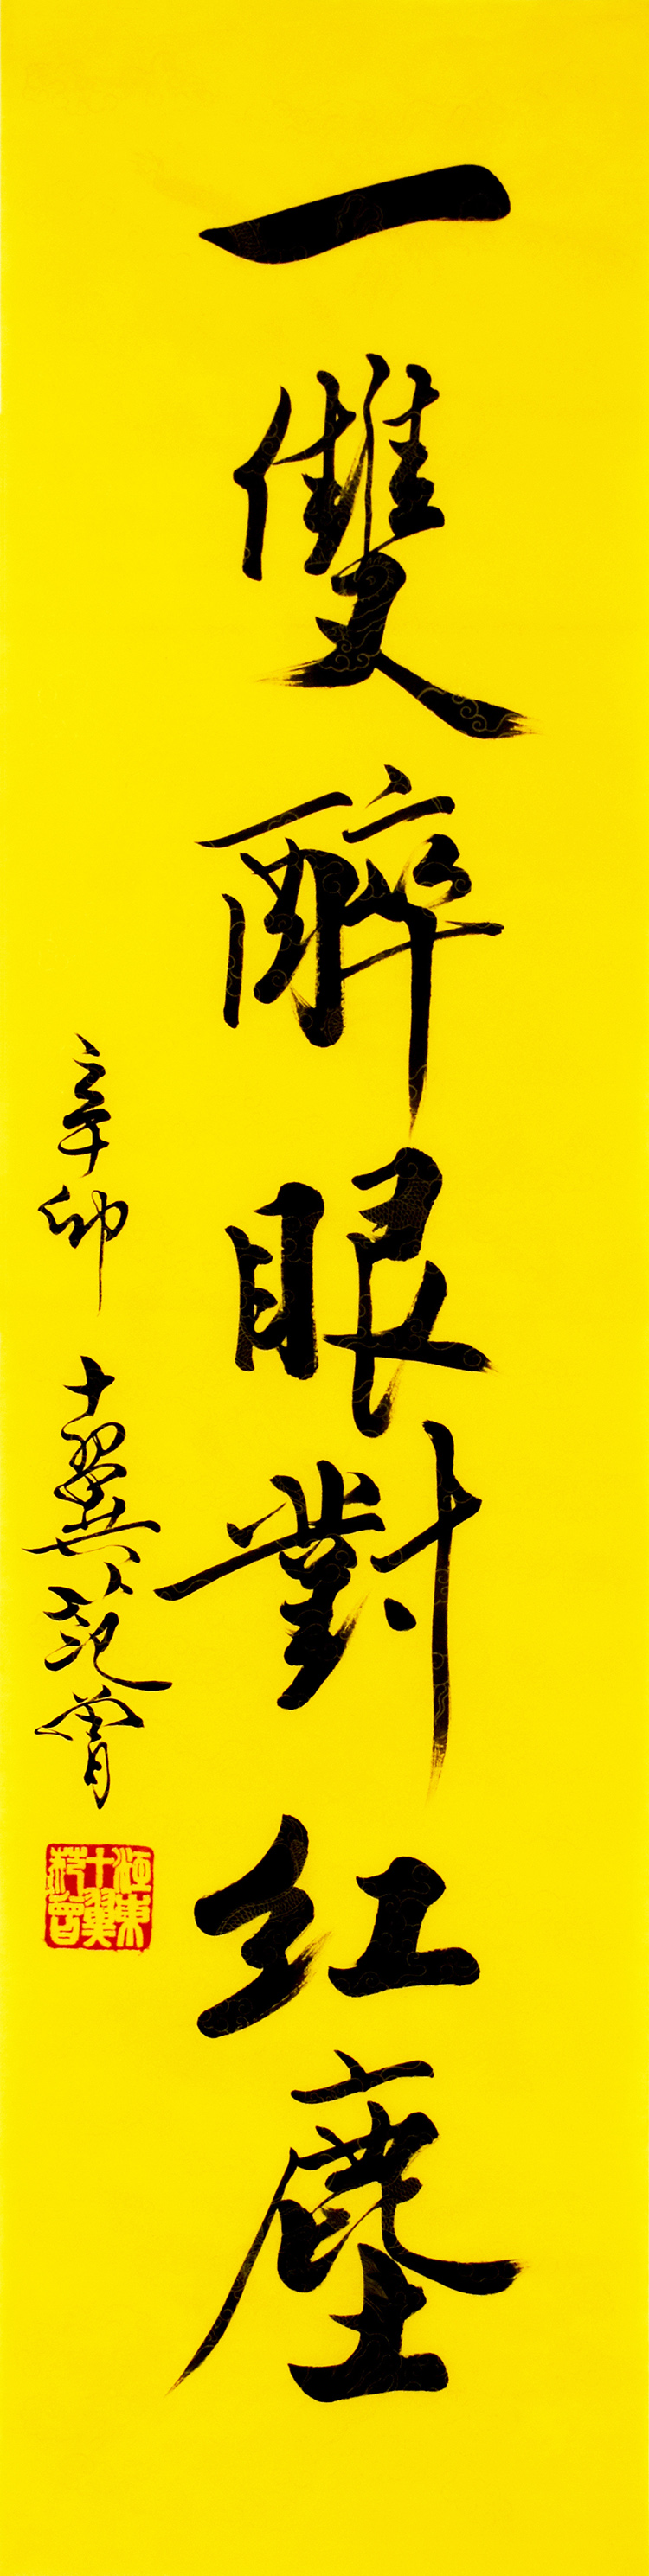 一雙醉眼對紅塵
辛卯 十翼范曾
江東十翼范曾